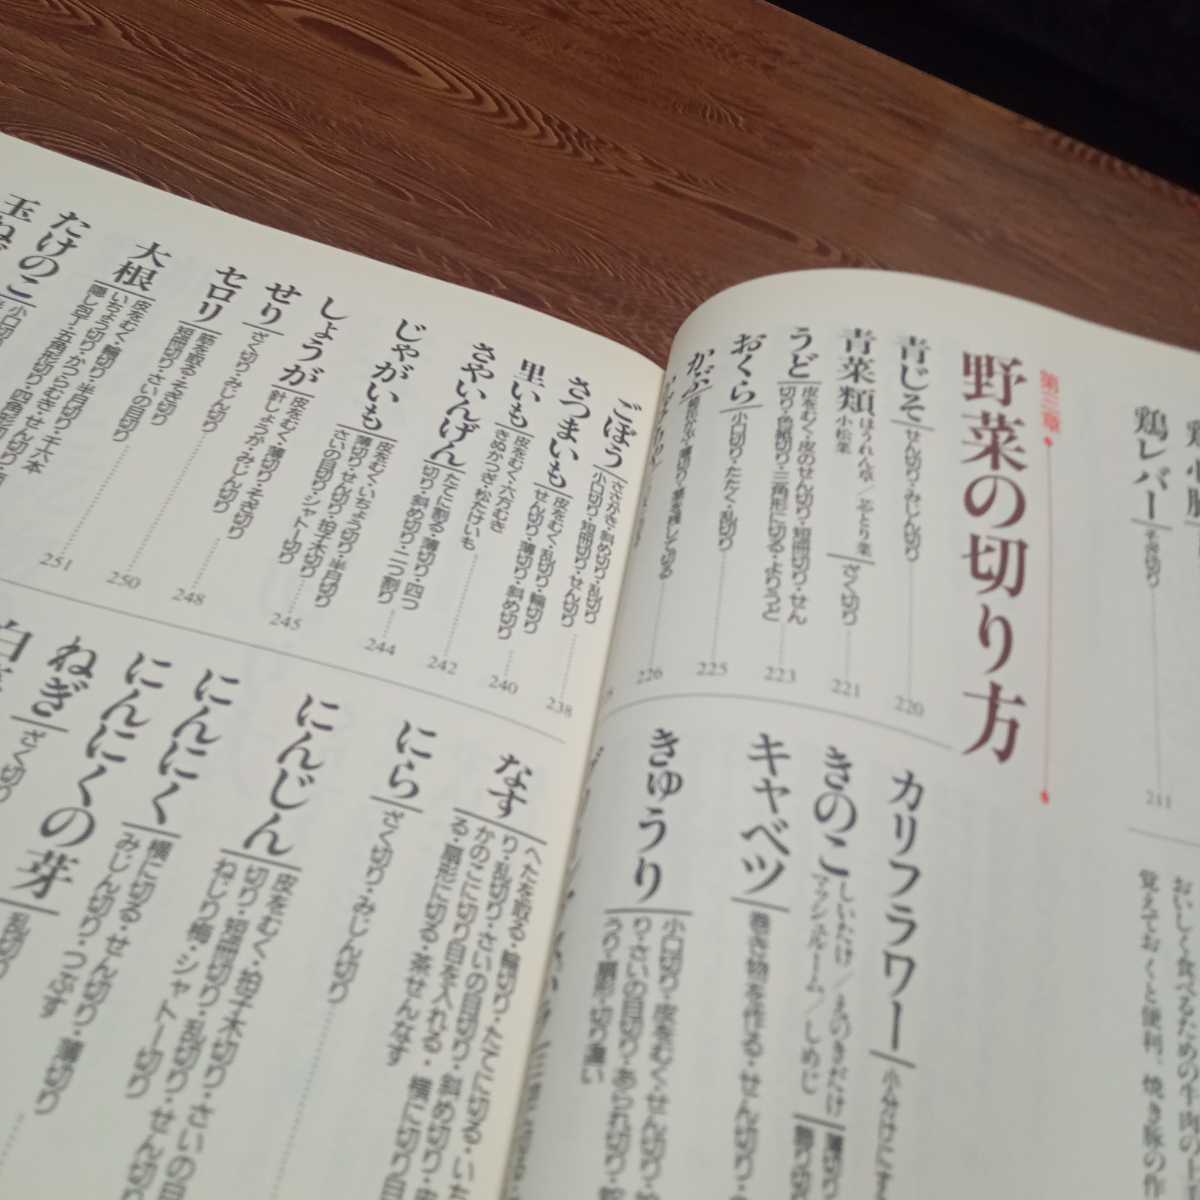 鶏レバー
そぎ切り
211
おいしく食べるための牛肉の
覚えておくと便利、焼き豚の作
第三章
野菜の切り方
青じそ
せん切り・みじん切り
220
青菜類
ほうれん草／
小松菜
ざく切り
221
うど
皮をむく・皮のせん切り・短冊切り・せん
切り・色紙切り・三角形に切る・よりうど
223
おくら
小口切り・たたく・乱切り
225
かぶ
薄切り・葉を残して切る
226
カリフラワー
小分けにす
きのこ
しいたけ／えのきだけ
マッシュルーム／しめじ
キャベツ
巻き物を作る・せん切り・
きゅうり
小口切り・皮をむく・せん切り・
り・さいの目切り・あられ切り・
切り違い
ごぼう
ささがき・斜め切り・乱切り
小口切り・短冊切り・せん切り
238
さつまいも
皮をむく・乱切り・輪切り
せん切り・薄切り・斜め切り
240
里いも
皮をむく・六方むき
きぬかつぎ・松たけいも
242
さやいんげん
たてに割る・薄切り・四つ
切り・斜め切り・二つ割り
244
じゃがいも
皮をむく・いちょう切り・半月切り
薄切り・せん切り・拍子木切り
さいの目切り・シャトー切り
245
しょうが
皮をむく・薄切り・そぎ切り
針しょうが・みじん切り
せり
ざく切り・みじん切り
248
セロリ
筋を取る・そぎ切り
短冊切り・さいの目切り
250
大根
皮をむく・輪切り・半月切り・千六本
いちょう切り・かつらむき・せん切り・
隠し包丁・五角形切り・四角形切り
251
たけのこ
小口切り
玉ねぎ
なす
へたを取る・輪切り・たてに切る・いち
り・乱切り・さいの目切り・斜め切り・皮
かのこに切り目を入れる・横に切り目
る・扇形に切る・茶せんなす
にら
ざく切り・みじん切り
にんじん
皮をむく・拍子木切り・さいの目
切り・短冊切り・乱切り・せん切り
ねじり梅・シャトー切り
にんにく
横に切る・せん切り・薄切り
みじん切り・つぶす
にんにくの芽
乱切り
ねぎ
ざく切り